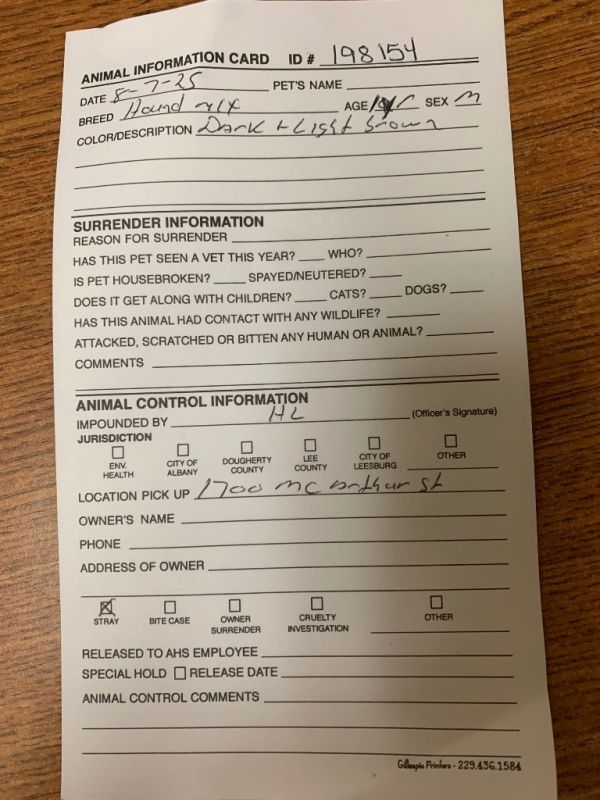 ANIMAL INFORMATION CARD ID # 198154
DATE 8-7-25 PET'S NAME
BREED Hound mix AGE 1 yr SEX M
COLOR/DESCRIPTION Dark + Light brown
SURRENDER INFORMATION
REASON FOR SURRENDER
HAS THIS PET SEEN A VET THIS YEAR? WHO?
IS PET HOUSEBROKEN? SPAYED/NEUTERED?
DOES IT GET ALONG WITH CHILDREN? CATS? DOGS?
HAS THIS ANIMAL HAD CONTACT WITH ANY WILDLIFE?
ATTACKED, SCRATCHED OR BITTEN ANY HUMAN OR ANIMAL?
COMMENTS
ANIMAL CONTROL INFORMATION
IMPOUNDED BY HL (Officer's Signature)
JURISDICTION
ENV. HEALTH CITY OF ALBANY DOUGHERTY COUNTY LEE COUNTY CITY OF LEESBURG OTHER
LOCATION PICK UP 1700 McArthur St
OWNER'S NAME
PHONE
ADDRESS OF OWNER
STRAY BITE CASE OWNER SURRENDER CRUELTY INVESTIGATION OTHER
RELEASED TO AHS EMPLOYEE
SPECIAL HOLD RELEASE DATE
ANIMAL CONTROL COMMENTS
Gillespie Printers - 229.436.1584